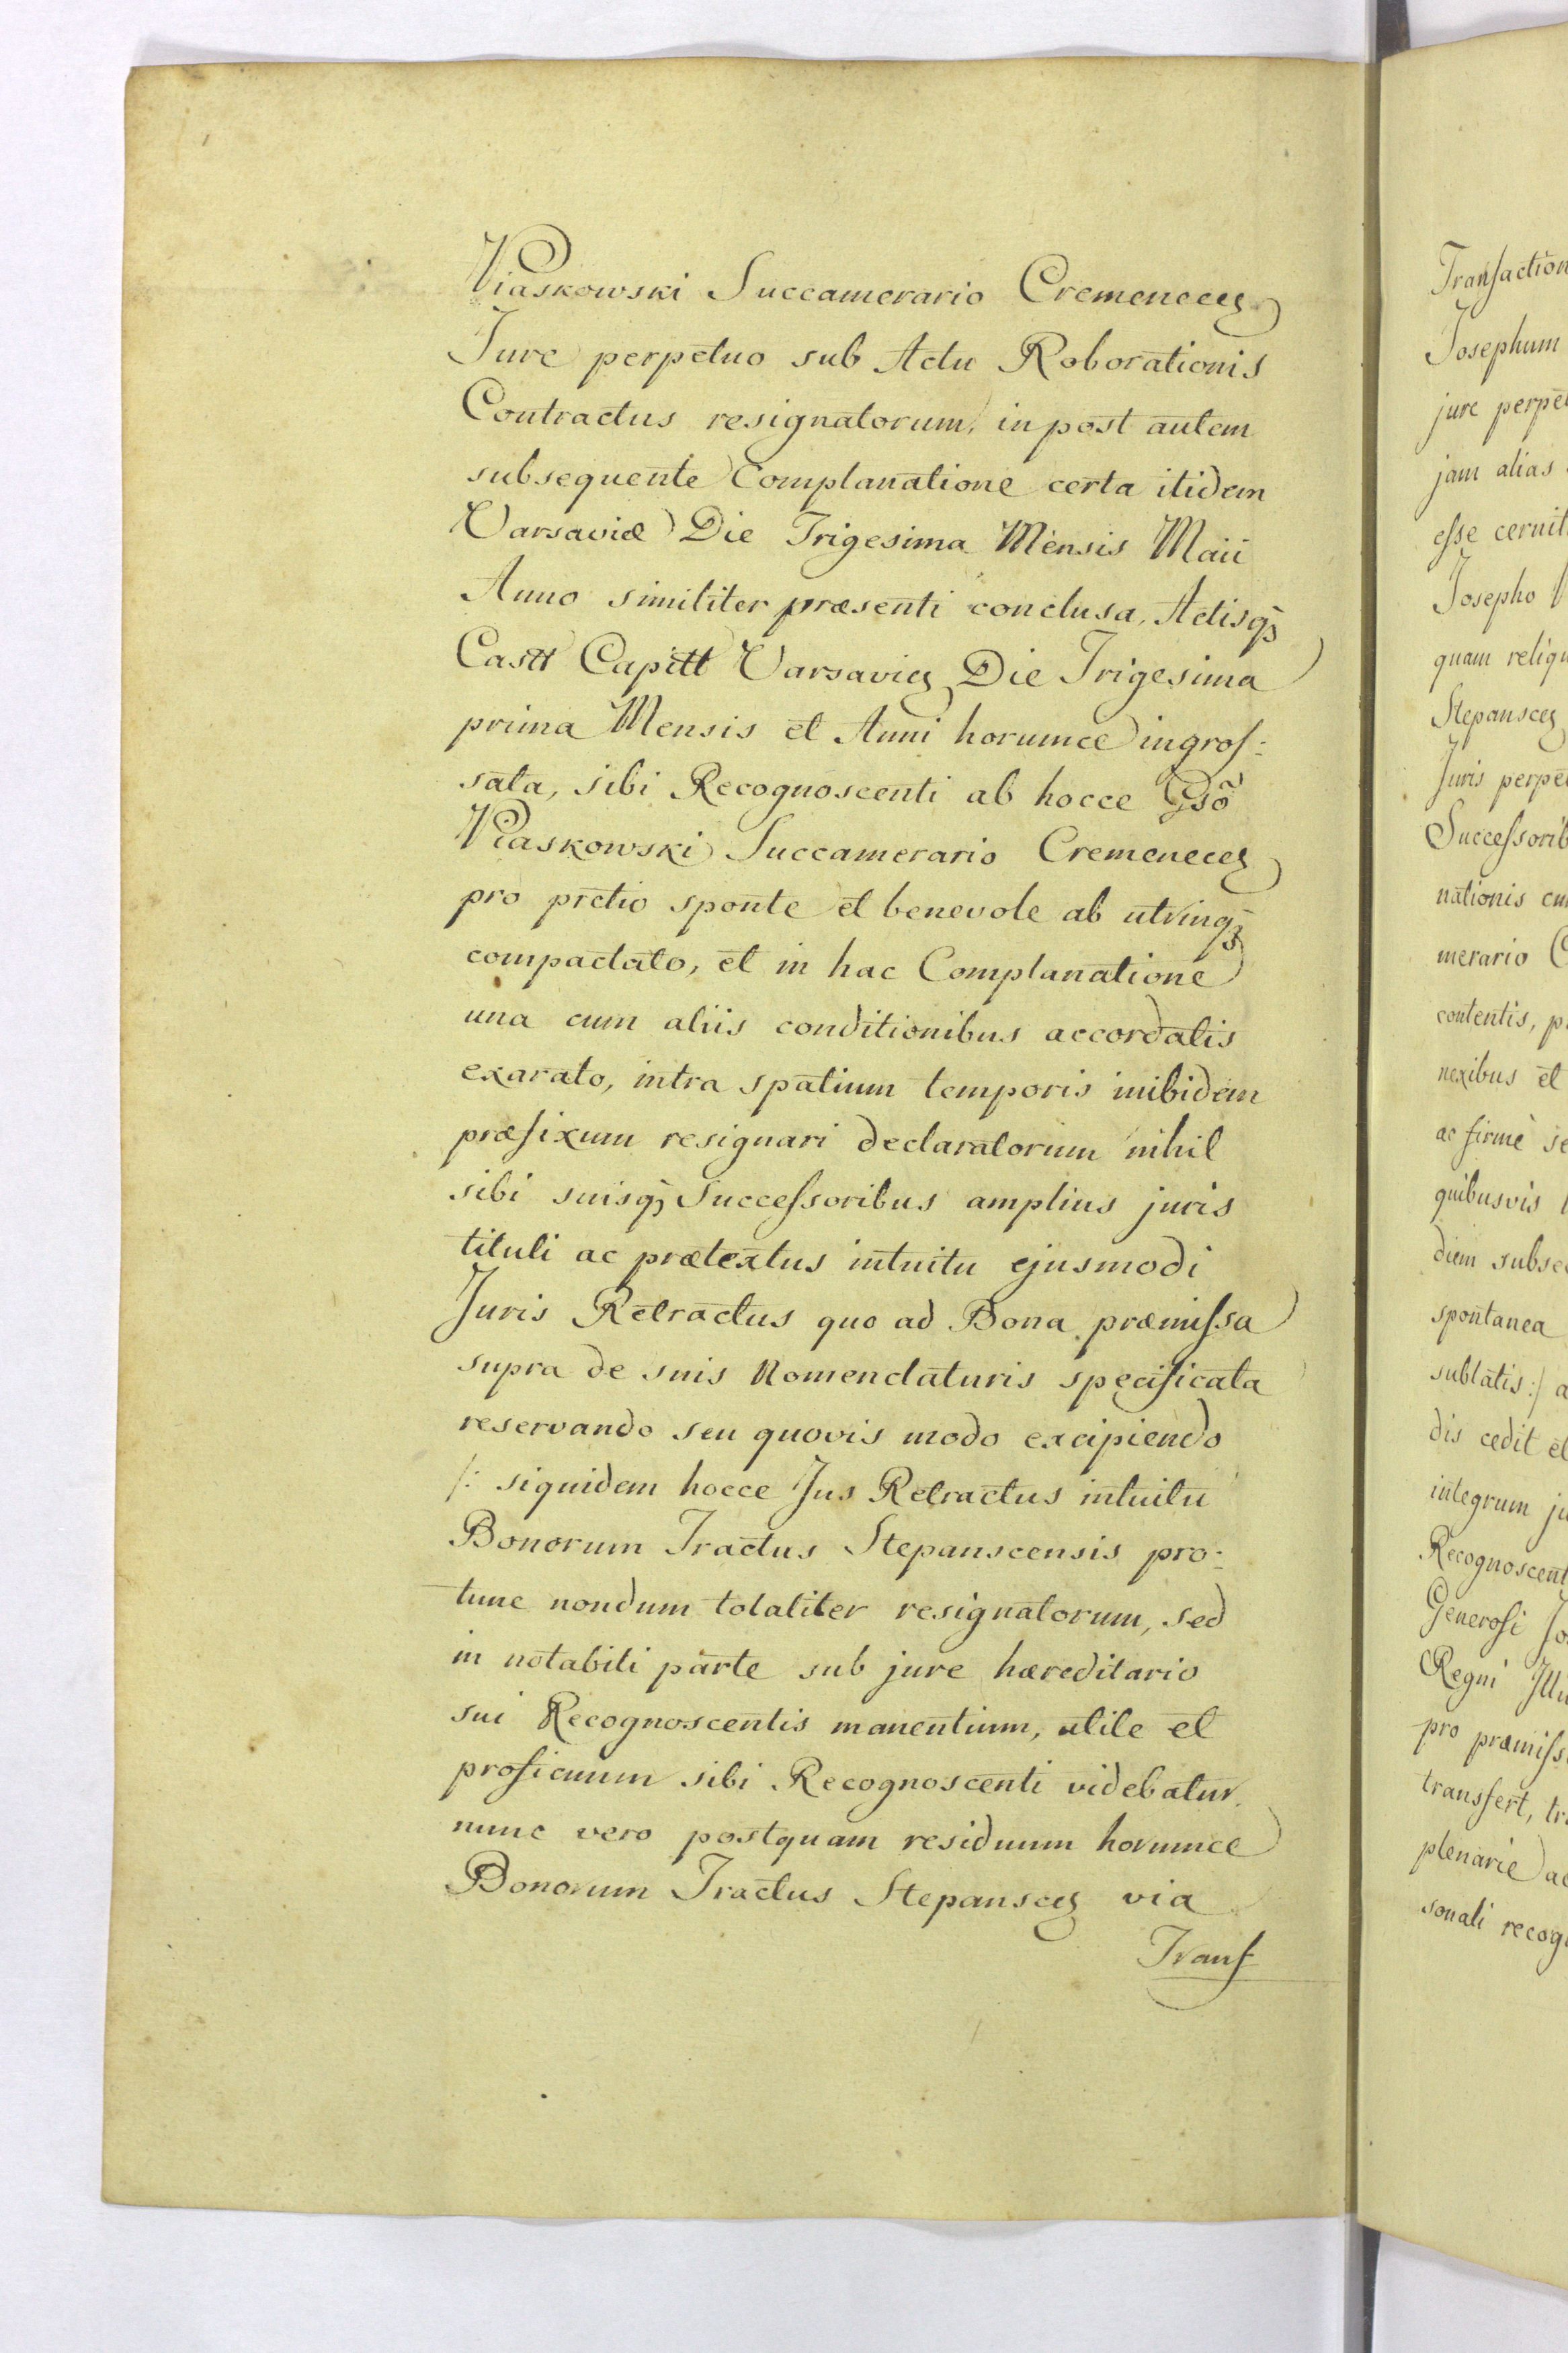 Piaskowski Succamerario Cremenecẽs
Jure perpetuo sub Actu Roborationis
Contractus resignatorum, in post autem
subsequente Complanatione certa itidem
Varsaviæ Die Trigesima Mensis Maii
Anno similiter præsenti conclusa, Actisq̨
Castt Capitt Varsavieñ Die Trigesima
prima Mensis et Anni horumce ingros:
sata, sibi Recognoscenti ab hocce Gsõ
Piaskowski Succamerario Cremenecẽs
pro prẽtio sponte et benevole ab utrinq̨
compactato, et in hac Complanatione
una cum aliis conditionibus accordatis
exarato, intra spatium temporis inibidem
præfixum resignari declaratorum nihil
sibi suisq̨ Successoribus amplius juris
tituli ac prætextus intuitu ejusmodi
Juris Retractus quo ad Bona præmissa
supra de suis Nomenclaturis specificata
reservando seu quovis modo excipiendo
/: siquidem hocce Jus Retractus intuitu
Bonorum Tractus Stepanscensis pro:
tunc nondum totaliter resignatorum, sed
in notabili parte sub jure hæreditario
sui Recognoscentis manentium, utile et
proficuum sibi Recognoscenti videbatur.
nunc vero postquam residuum horumce
Bonorum Tractus Stepanscẽs via
Transf
Transaction
Josephum
jure perpet
jam alias
esse cernit
Josepho
quam reliqu
Stepanscẽs
Juris perpe
Successorib
nationis cu
merario C
contentis, p
nexibus et
ac firmè se
quibusvis
diem subse
spontanea
sublatis :/ a
dis cedit et
integrum ju
Recognoscent
Generosi Jo
Regni Illu
pro præmiss
transfert, tra
plenarie ac
sonali recog